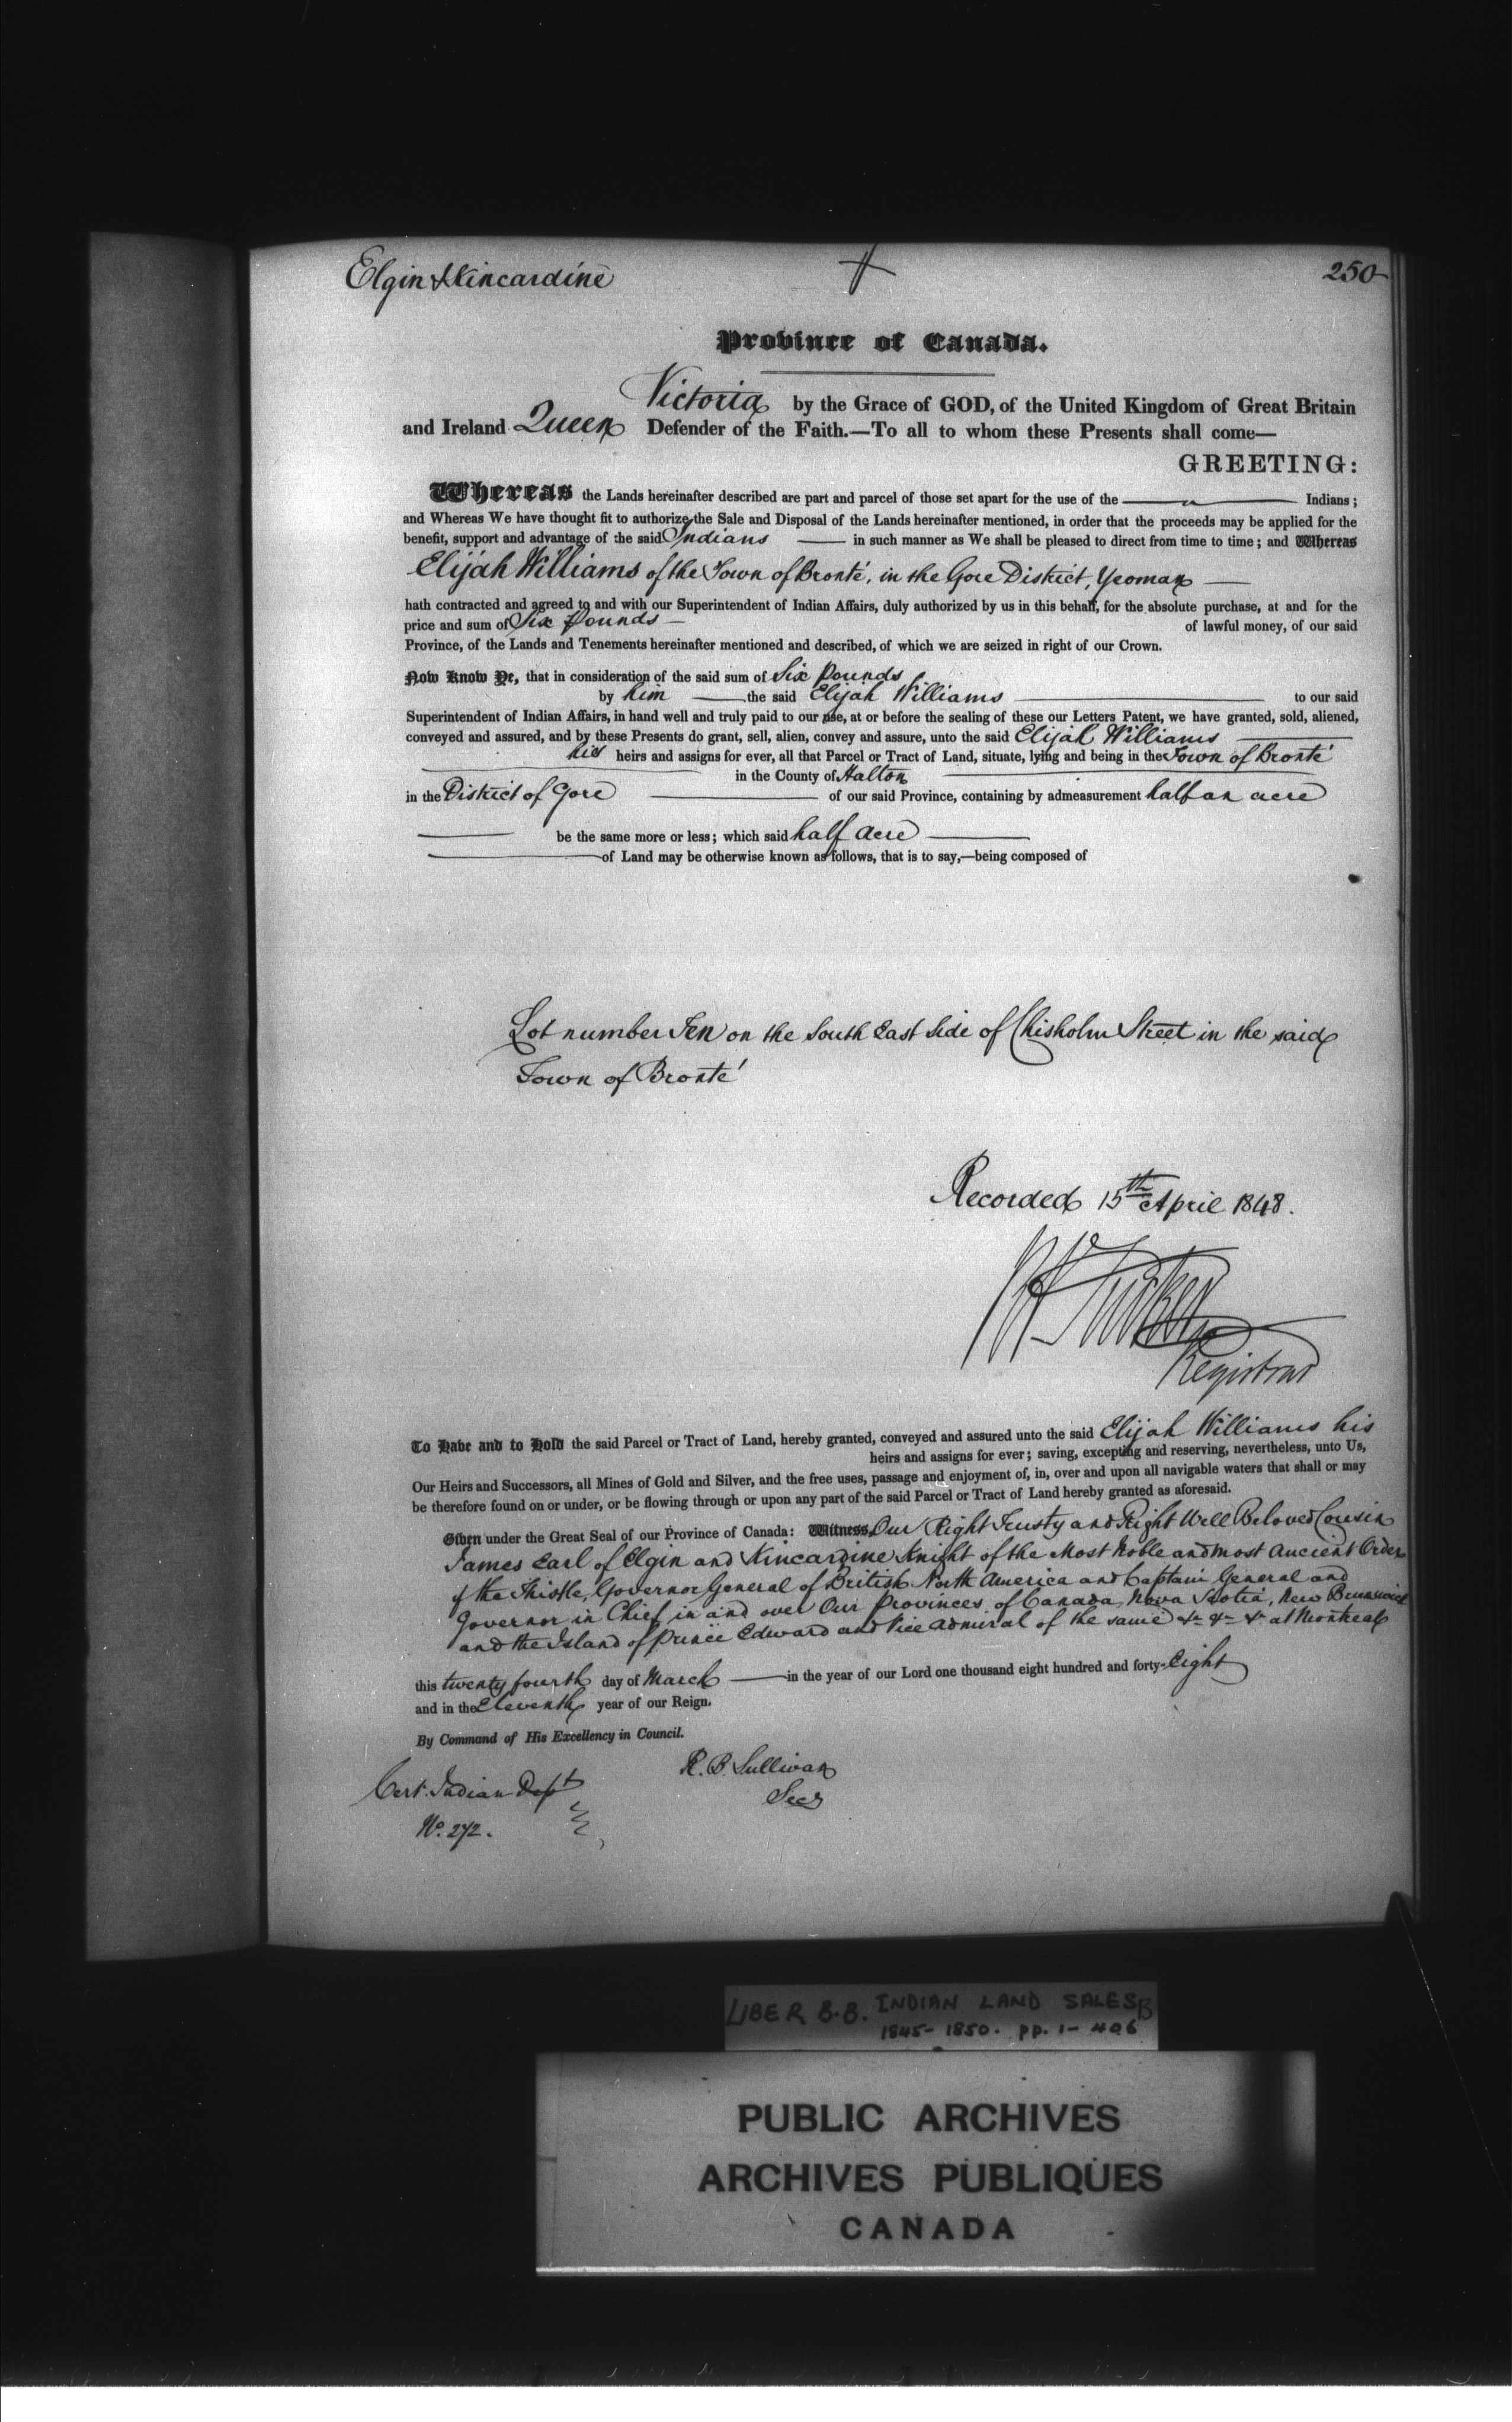 Elgin & Kincardine
250
Province of Canada.
Victoria by the Grace of GOD, of the United Kingdom of Great Britain
and Ireland Queen Defender of the Faith.—To all to whom these Presents shall come—
GREETING:
Whereas the Lands hereinafter described are part and parcel of those set apart for the use of the — Indians;
and Whereas We have thought fit to authorize the Sale and Disposal of the Lands hereinafter mentioned, in order that the proceeds may be applied for the
benefit, support and advantage of the said Indians — in such manner as We shall be pleased to direct from time to time; and Whereas
Elijah Williams of the Town of Bronté, in the Gore District, Yeoman —
hath contracted and agreed to and with our Superintendent of Indian Affairs, duly authorized by us in this behalf, for the absolute purchase, at and for the
price and sum of Six Pounds — of lawful money, of our said
Province, of the Lands and Tenements hereinafter mentioned and described, of which we are seized in right of our Crown.
Now Know Ye, that in consideration of the said sum of Six Pounds
by him — the said Elijah Williams — to our said
Superintendent of Indian Affairs, in hand well and truly paid to our use, at or before the sealing of these our Letters Patent, we have granted, sold, aliened,
conveyed and assured, and by these Presents do grant, sell, alien, convey and assure, unto the said Elijah Williams —
his heirs and assigns for ever, all that Parcel or Tract of Land, situate, lying and being in the Town of Bronté
— in the County of Halton —
in the District of Gore — of our said Province, containing by admeasurement half an acre
— be the same more or less; which said half acre —
— of Land may be otherwise known as follows, that is to say,—being composed of
Lot number Ten on the South East Side of Chisholm Street in the said
Town of Bronté
Recorded 15th April 1848.
Registrar
To Have and to Hold the said Parcel or Tract of Land, hereby granted, conveyed and assured unto the said Elijah Williams his
heirs and assigns for ever; saving, excepting and reserving, nevertheless, unto Us,
Our Heirs and Successors, all Mines of Gold and Silver, and the free uses, passage and enjoyment of, in, over and upon all navigable waters that shall or may
be therefore found on or under, or be flowing through or upon any part of the said Parcel or Tract of Land hereby granted as aforesaid.
Given under the Great Seal of our Province of Canada: Witness, Our Right Trusty and Right Well Beloved Cousin
James Earl of Elgin and Kincardine Knight of the Most Noble and most Ancient Order
of the Thistle, Governor General of British North America and Captain General and
Governor in Chief in and over Our Provinces of Canada, Nova Scotia, New Brunswick
and the Island of Prince Edward and Vice Admiral of the same &c &c &c at Montreal
this twenty fourth day of March — in the year of our Lord one thousand eight hundred and forty-Eight
and in the Eleventh year of our Reign.
By Command of His Excellency in Council.
R. B. Sullivan
Secy
Cert. Indian Dept
No. 272.
LIBER B.B. INDIAN LAND SALES B
1845-1850. pp. 1-406
PUBLIC ARCHIVES
ARCHIVES PUBLIQUES
CANADA